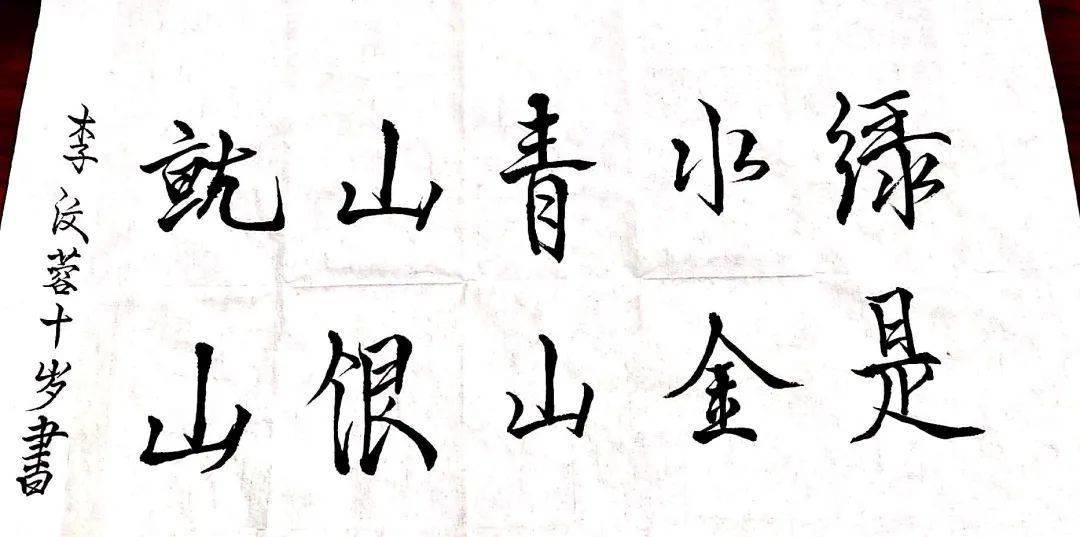 绿水青山就
是金山银山
李汶蓉十岁書